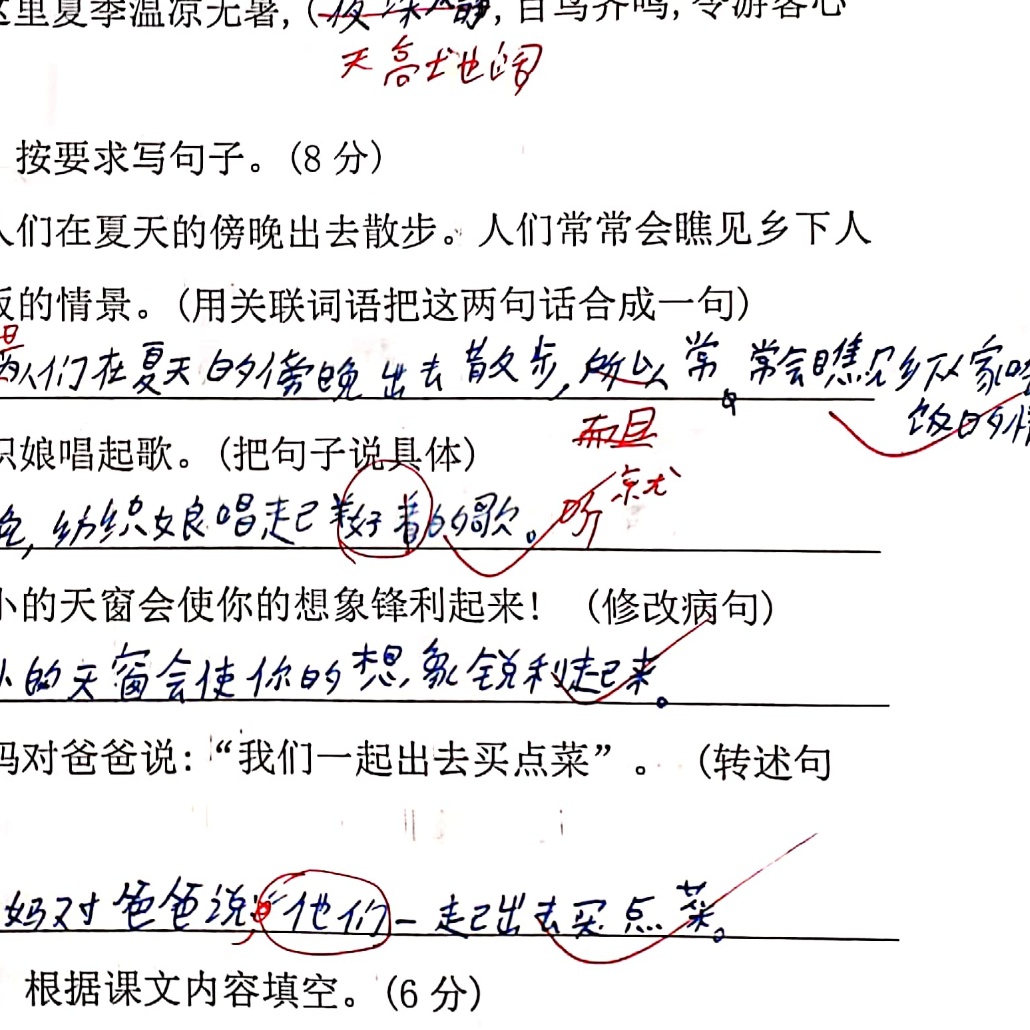 这里夏季温凉无暑,(夜深人静,百鸟齐鸣,令游客心
天高地阔
按要求写句子。(8分)
人们在夏天的傍晚出去散步。人们常常会瞧见乡下人
饭的情景。(用关联词语把这两句话合成一句)
人们在夏天的傍晚出去散步,所以常常会瞧见乡下人家吃
饭的情
而且
织娘唱起歌。(把句子说具体)
,纺织娘唱起好着的歌。
听
就
小的天窗会使你的想象锋利起来!(修改病句)
小的天窗会使你的想象锐利起来。
妈对爸爸说:“我们一起出去买点菜”。(转述句
妈对爸爸说,他们一起出去买点菜。
根据课文内容填空。(6分)